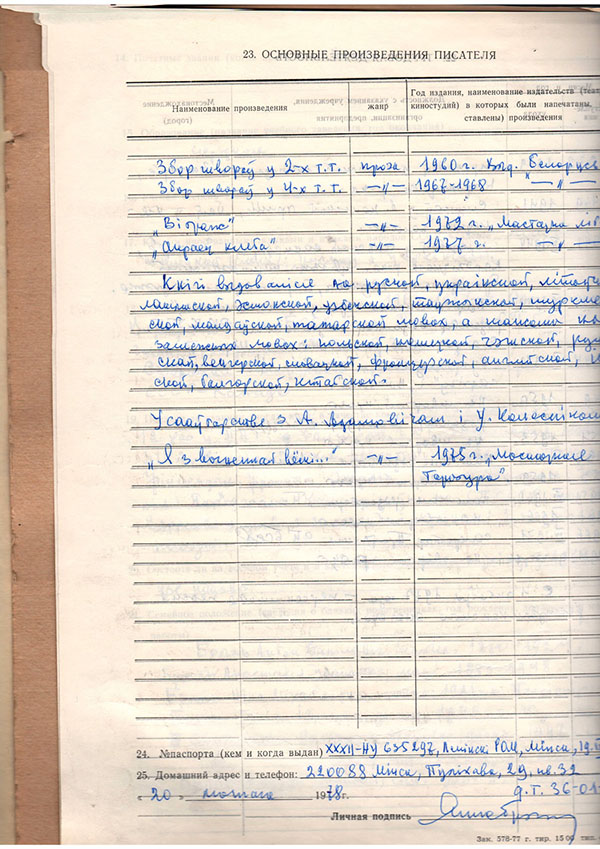 23. ОСНОВНЫЕ ПРОИЗВЕДЕНИЯ ПИСАТЕЛЯ
Наименование произведения
жанр
Год издания, наименование издательств (теат
киностудий) в которых были напечатаны
ставлены) произведения
Збор твораў у 2-х т.т. проза 1960 г. Выд. "Беларусь
Збор твораў у 4-х т.т. —„— 1967-1968 —„—
„Віталіс" —„— 1972 г. „Мастацкая літ
„Акраец хлеба" —„— 1977 г. —„—
Кнігі выдаваліся на рускай, украінскай, літоўс
латышскай, эстонскай, узбекскай, таджыкскай, туркме
скай, малдаўскай, татарскай мовах, а таксама на
замежных мовах: польскай, нямецкай, чэшскай, рум
скай, венгерскай, славацкай, французскай, англійскай,
скай, балгарскай, кітайскай.
У сааўтарстве з А. Адамовічам і У. Калеснікам
„Я з вогненнай вёскі..." —„— 1975 г. „Мастацкая
24. №паспорта (кем и когда выдан) XXXII-НУ 635297, Ленінскі РОМ, Мінск, 19.
25. Домашний адрес и телефон: 220088 Мінск, Пуліхава, 29, кв. 32
« 20 » лютага 1978г. д.т. 36-01-
Личная подпись
Зак. 578-77 г. тир. 1500